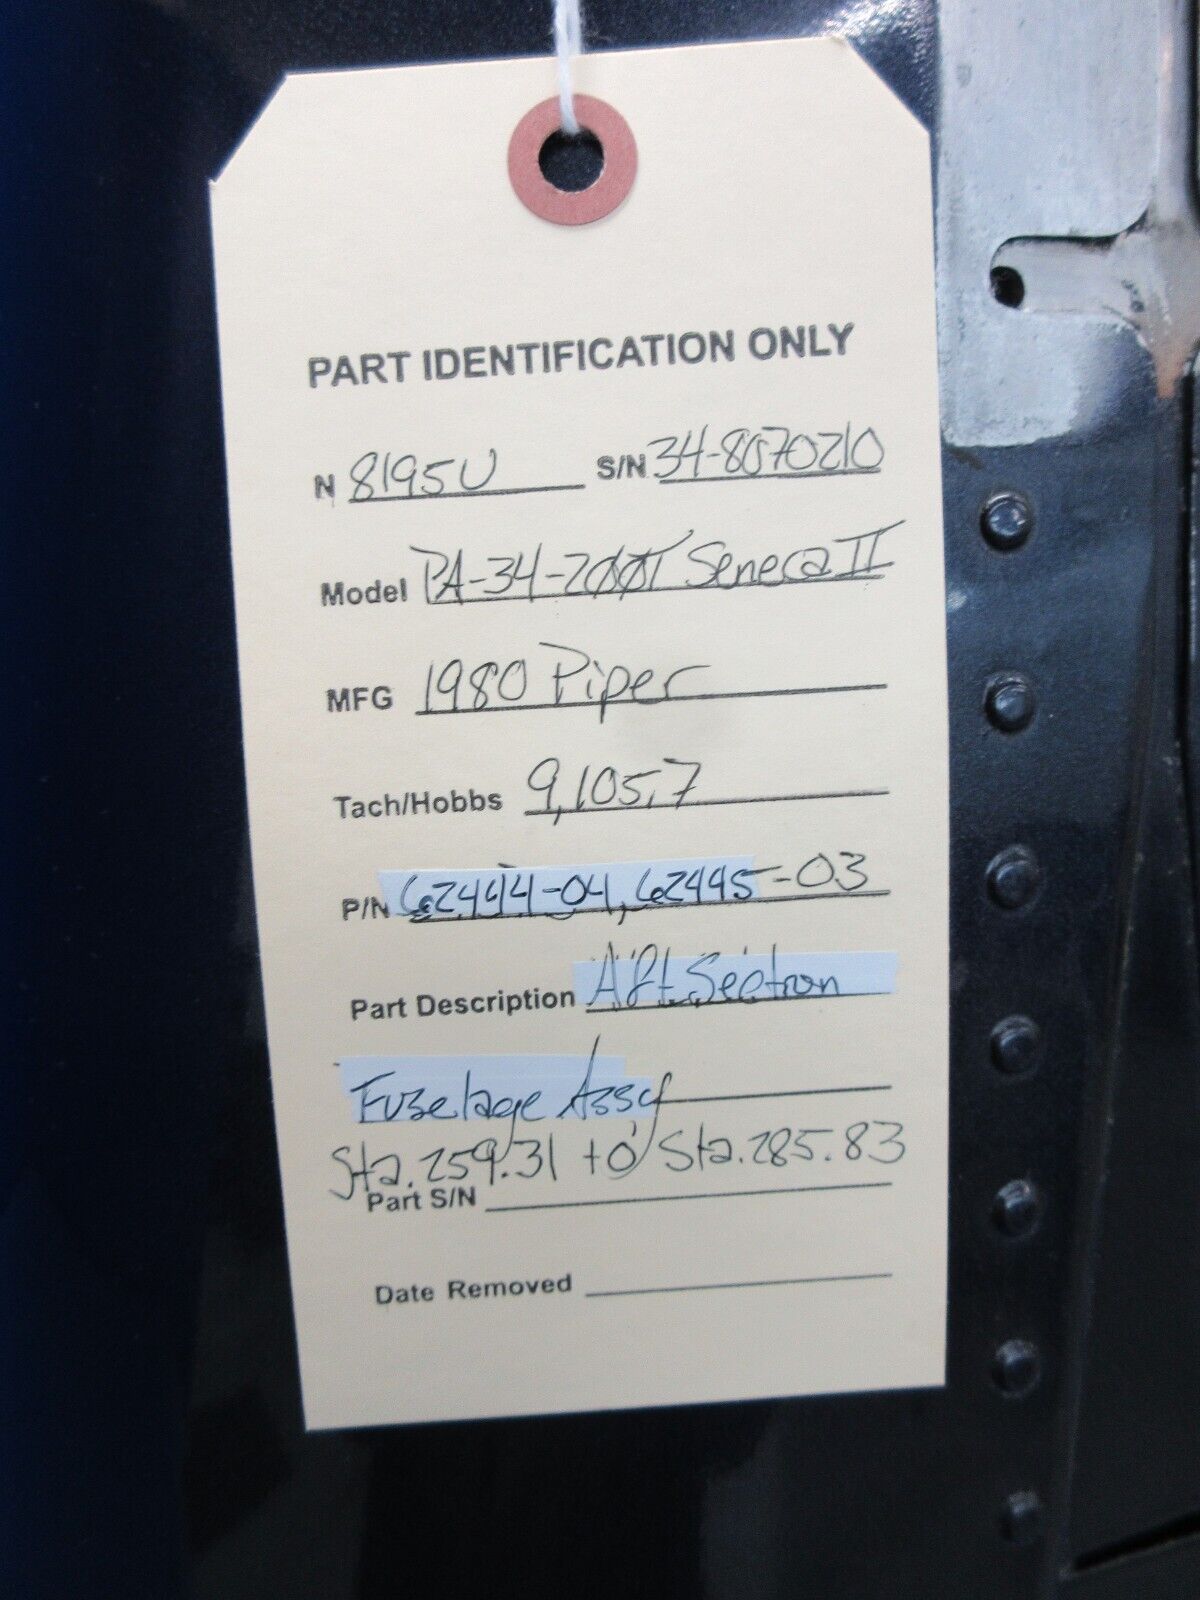 PART IDENTIFICATION ONLY
N 8195U S/N 34-8070210
Model PA-34-200T Seneca II
MFG 1980 Piper
Tach/Hobbs 9,105.7
P/N 62444-04, 62445-03
Part Description Aft Section
Fuselage Assy
Sta. 259.31 to Sta. 285.83
Part S/N
Date Removed